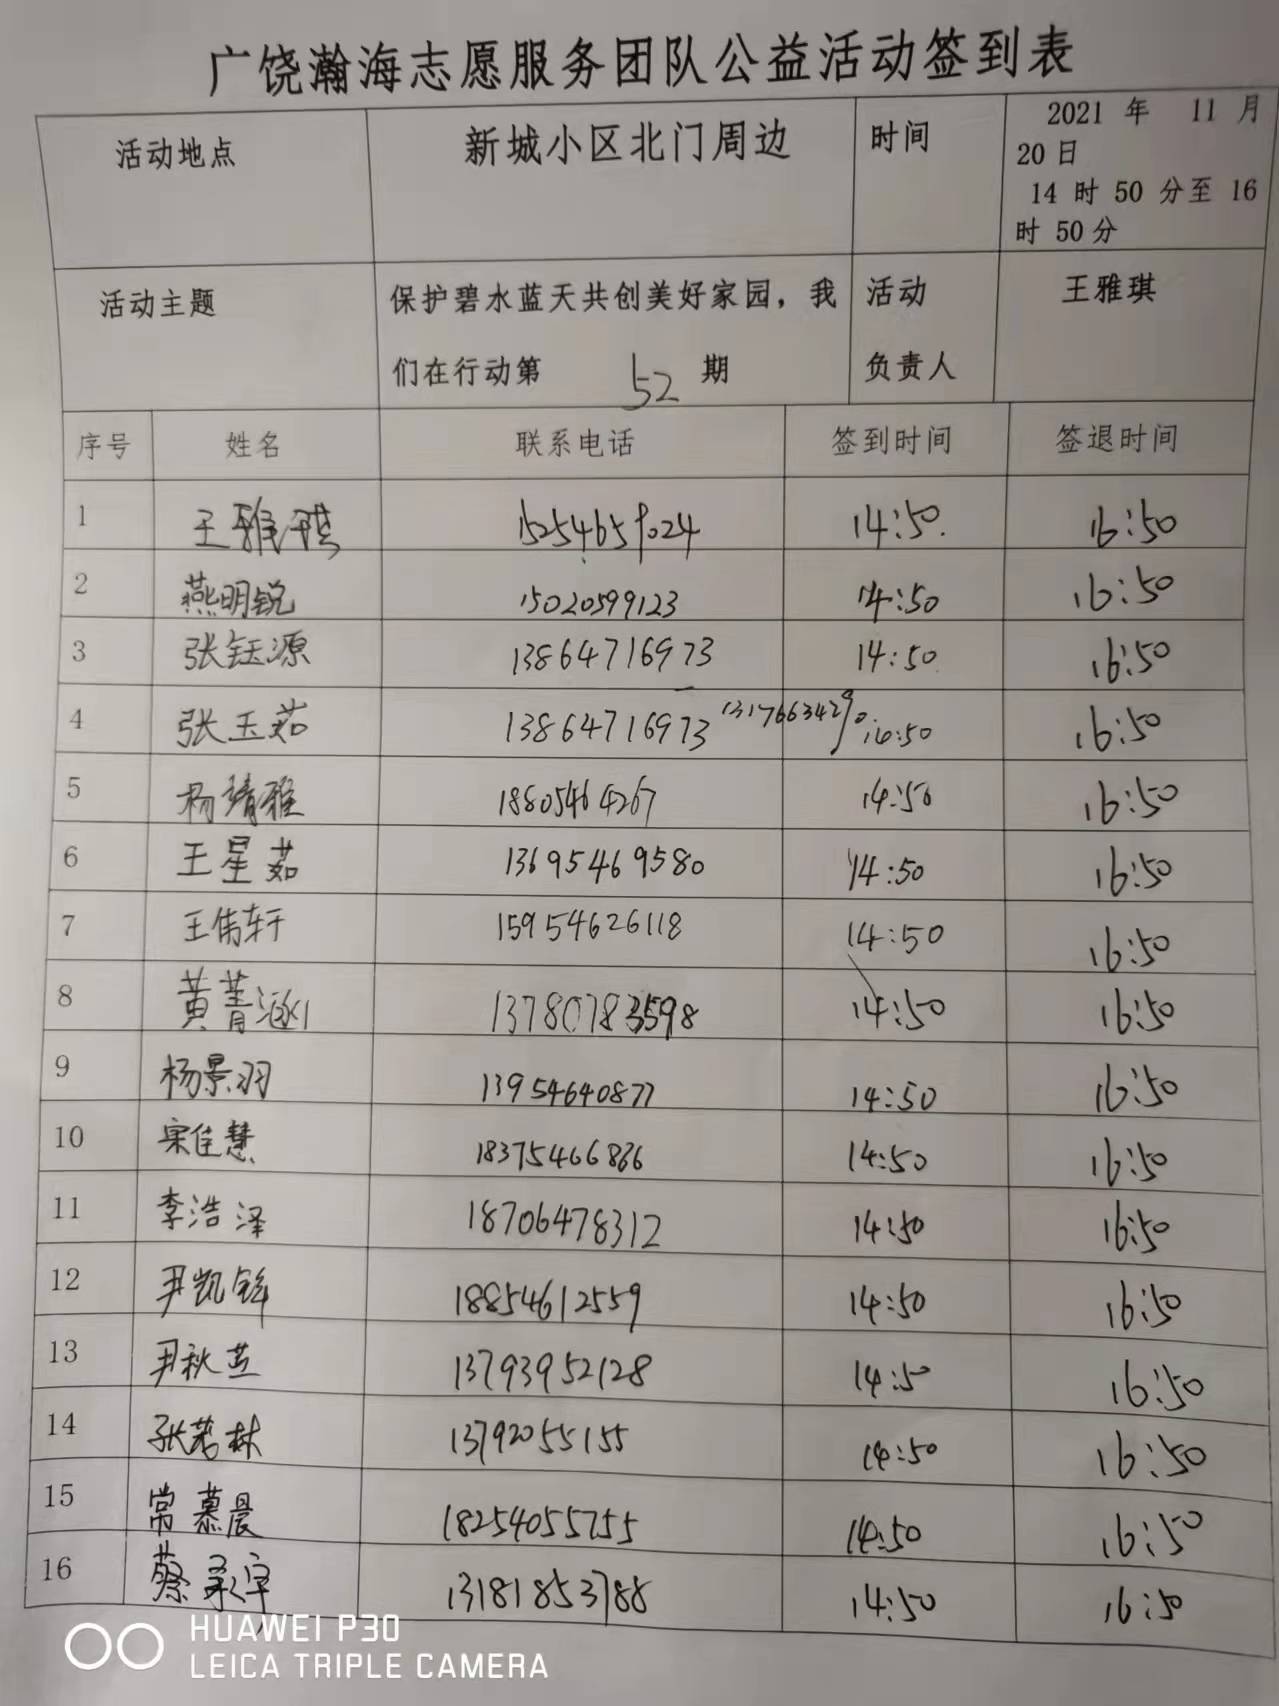 广饶瀚海志愿服务团队公益活动签到表
活动地点 新城小区北门周边 时间 2021 年 11 月
20 日
14 时 50 分至 16
时 50 分
活动主题 保护碧水蓝天共创美好家园，我 活动 王雅琪
们在行动第 52 期 负责人
序号 姓名 联系电话 签到时间 签退时间
1 王雅琪 15254659024 14:50 16:50
2 燕明锐 15020599123 14:50 16:50
3 张钰源 13864716973 14:50 16:50
4 张玉茹 13864716973 13176634290 14:50 16:50
5 杨靖雅 18805464267 14:50 16:50
6 王星茹 13695469580 14:50 16:50
7 王伟轩 15954626118 14:50 16:50
8 黄菁涵 13780783598 14:50 16:50
9 杨景羽 13954640877 14:50 16:50
10 宋佳慧 18375466866 14:50 16:50
11 李浩泽 18706478312 14:50 16:50
12 尹凯 18854612559 14:50 16:50
13 尹秋 13793952128 14:50 16:50
14 张若林 13792055155 14:50 16:50
15 常慕晨 18254055755 14:50 16:50
16 蔡承宇 13181853788 14:50 16:50
HUAWEI P30
LEICA TRIPLE CAMERA